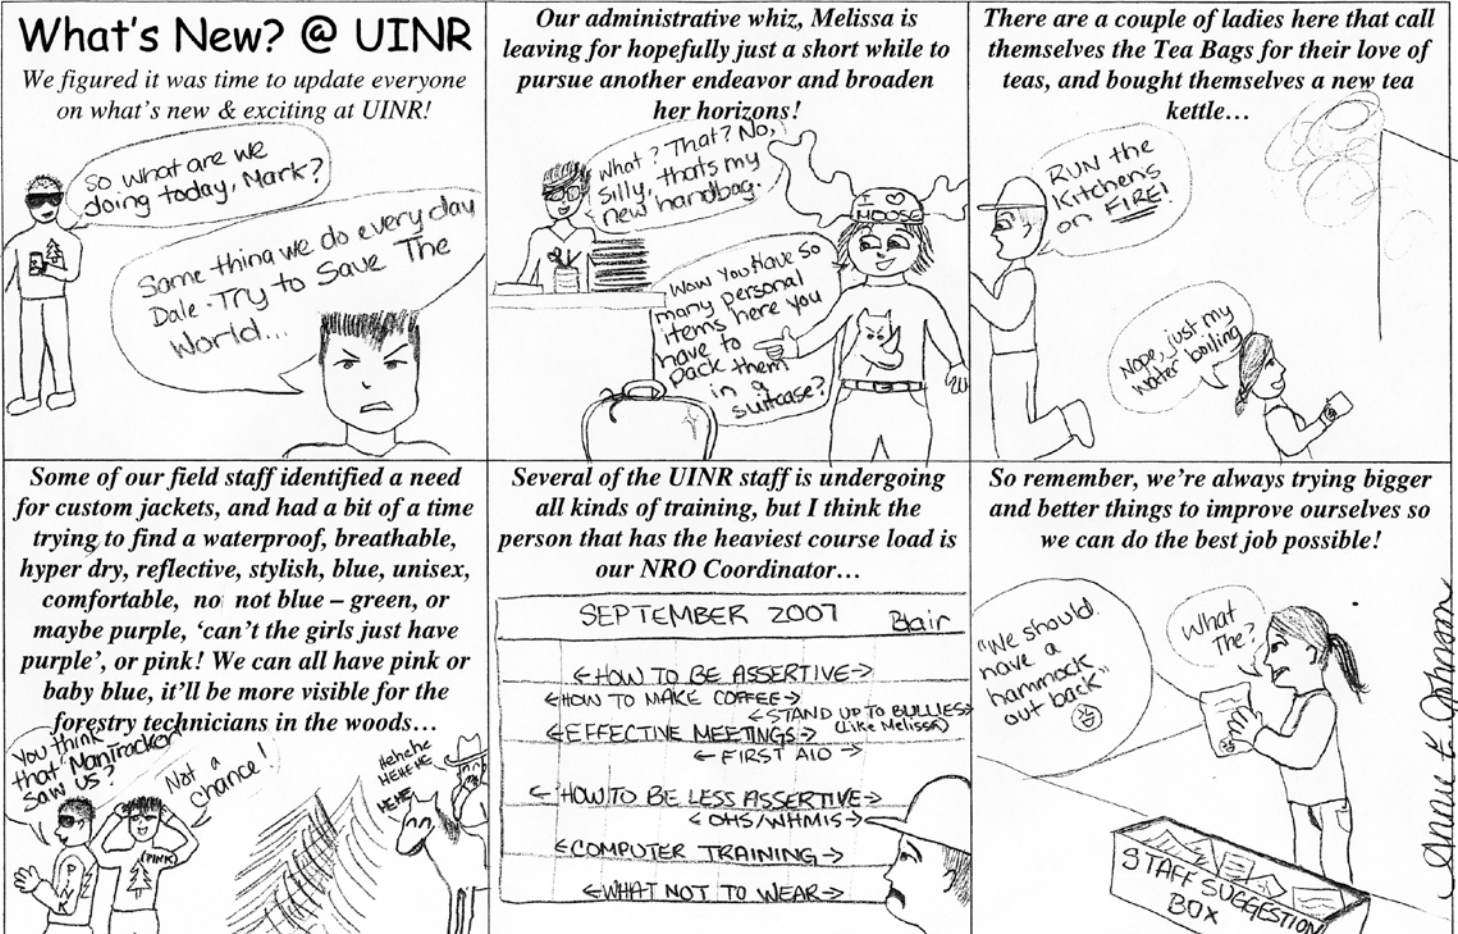 What's New? @ UINR
We figured it was time to update everyone
on what's new & exciting at UINR!
So what are we
doing today, Mark?
Same thing we do every day
Dale - Try to Save The
World...
Our administrative whiz, Melissa is
leaving for hopefully just a short while to
pursue another endeavor and broaden
her horizons!
What? That? No,
silly, thats my
new handbag.
I ♡
MOOSE
Wow You Have So
many personal
items here you
have to
pack them
in a
suitcase?
There are a couple of ladies here that call
themselves the Tea Bags for their love of
teas, and bought themselves a new tea
kettle…
RUN the
Kitchens
on FIRE!
Nope, just my
water boiling
Some of our field staff identified a need
for custom jackets, and had a bit of a time
trying to find a waterproof, breathable,
hyper dry, reflective, stylish, blue, unisex,
comfortable, no not blue – green, or
maybe purple, 'can't the girls just have
purple', or pink! We can all have pink or
baby blue, it'll be more visible for the
forestry technicians in the woods…
You think
that "ManTracker"
saw us?
Not a
chance!
Hehehe
HEHEHE
HEHE
PINK
(PINK)
Several of the UINR staff is undergoing
all kinds of training, but I think the
person that has the heaviest course load is
our NRO Coordinator…
SEPTEMBER 2007 Blair
←HOW TO BE ASSERTIVE→
←HOW TO MAKE COFFEE→
←STAND UP TO BULLIES→
(Like Melissa)
←EFFECTIVE MEETINGS→
← FIRST AID →
← HOW TO BE LESS ASSERTIVE→
← OHS/WHMIS→
←COMPUTER TRAINING→
←WHAT NOT TO WEAR→
So remember, we're always trying bigger
and better things to improve ourselves so
we can do the best job possible!
"We should
have a
hammock
out back"
What
The?
STAFF SUGGESTION
BOX
Annie E. Johnson